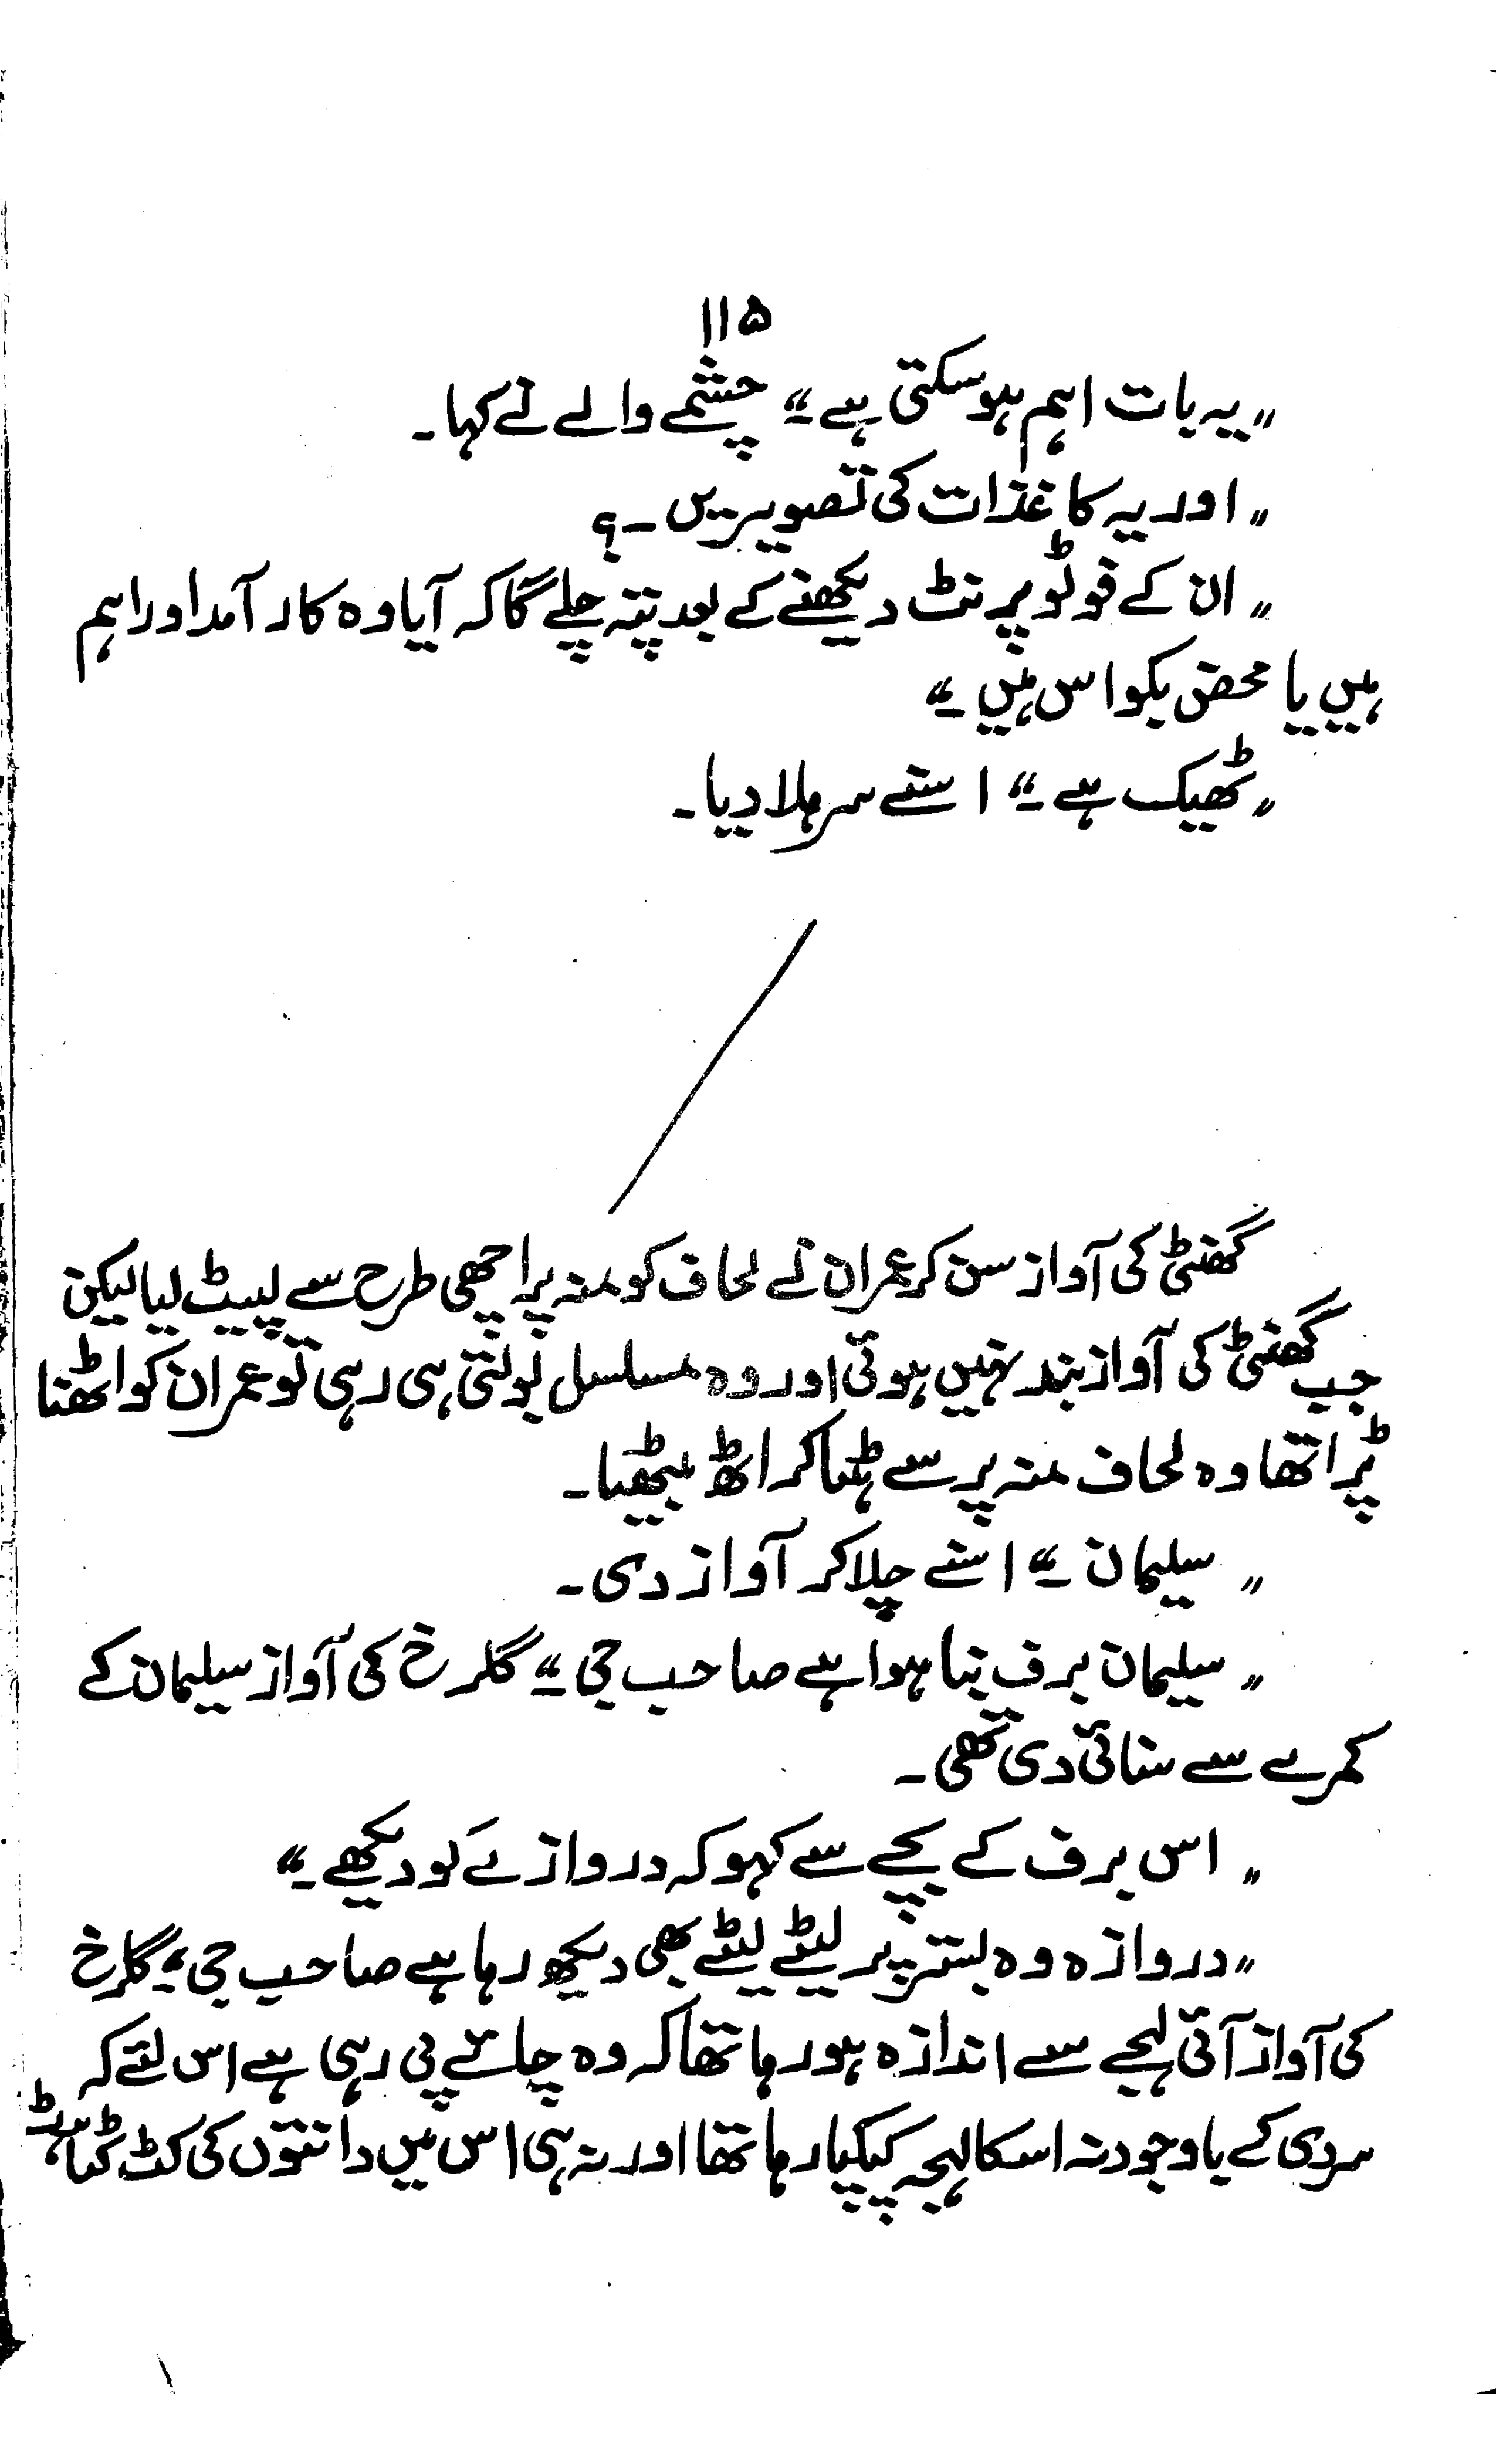 ۱۱۵
”یہ بات اہم ہو سکتی ہے۔“ چشمے والے نے کہا۔
”اور یہ کاغذات کی تصویریں۔؟
”ان کے فوٹو پرنٹ دیکھنے کے بعد پتہ چلے گا کہ آیا وہ کار آمد اور اہم
ہیں یا محض بکواس ہیں۔“
”ٹھیک ہے۔“ اسنے سر ہلا دیا۔
گھنٹی کی آواز سن کر عمران نے لحاف کو منہ پر اچھی طرح سے لپیٹ لیا لیکن
جب گھنٹی کی آواز بند نہیں ہوئی اور وہ مسلسل بولتی ہی رہی تو عمران کو اٹھنا
پڑا تھا وہ لحاف منہ پر سے ہٹا کر اٹھ بیٹھا۔
”سلیمان۔“ اسنے چلا کر آواز دی۔
”سلیمان برف بنا ہوا ہے صاحب جی۔“ گلرخ کی آواز سلیمان کے
کمرے سے سنائی دی تھی۔
”اس برف کے بچے سے کہو کہ دروازے کو دیکھے۔“
”دروازہ وہ بستر پر لیٹے لیٹے بھی دیکھ رہا ہے صاحب جی۔“ گلرخ
کی آواز آئی لہجے سے اندازہ ہو رہا تھا کہ وہ چائے پی رہی ہے اس لئے کہ
سردی کے باوجود نہ اسکا لہجہ کپکپا رہا تھا اور نہ ہی اس میں دانتوں کی کٹ کٹاہٹ